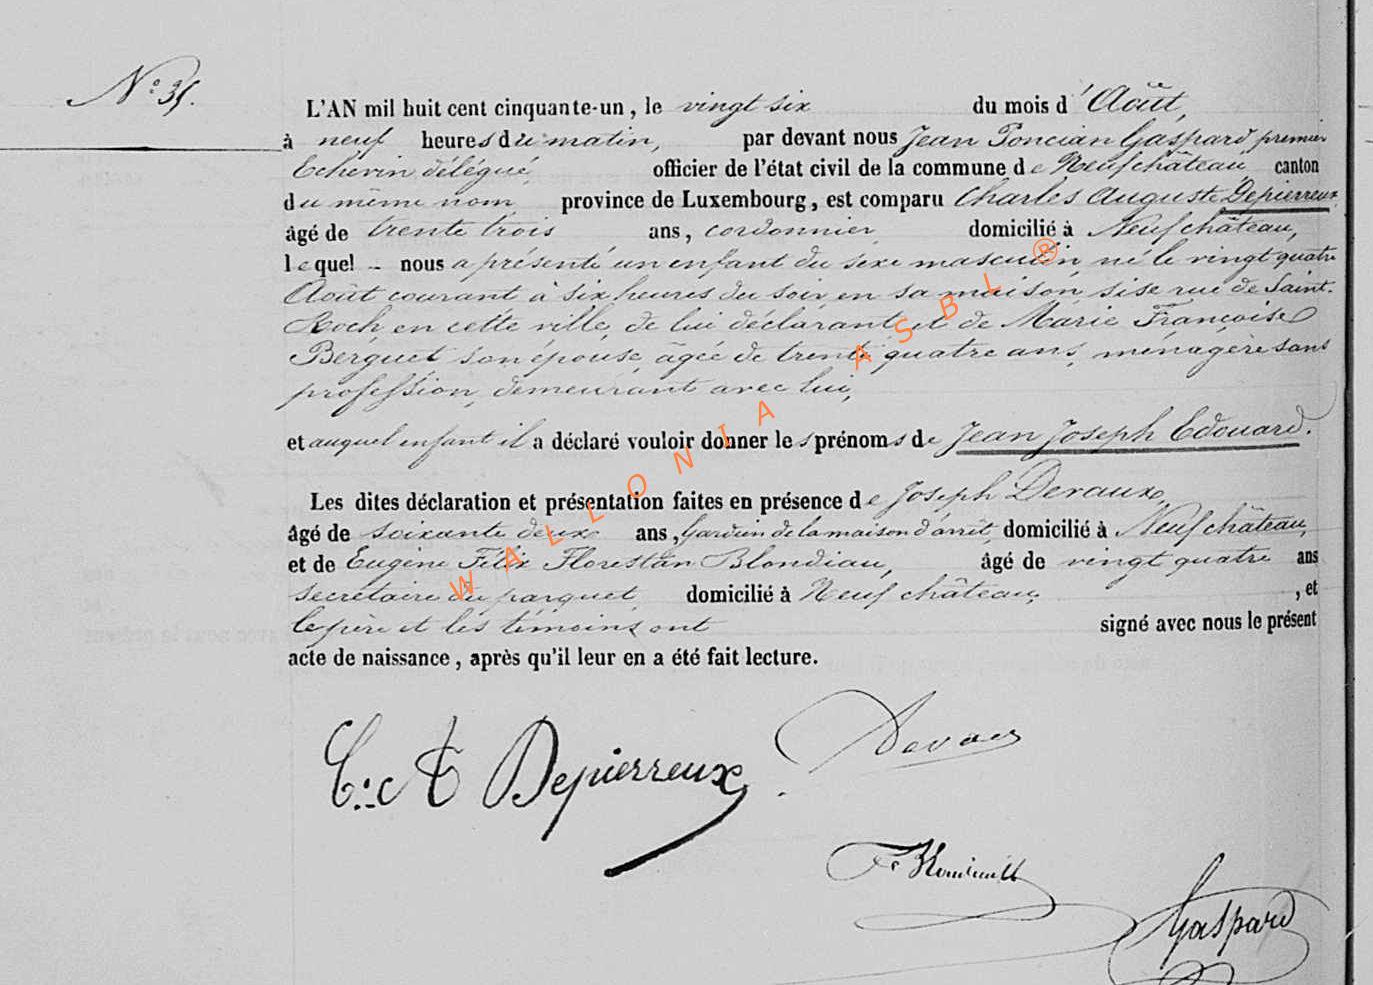 N.° 35.
L'AN mil huit cent cinquante-un, le vingt six du mois d'Août,
à neuf heures du matin, par devant nous Jean Poncian Gaspard premier
Echevin délégué, officier de l'état civil de la commune de Neufchâteau canton
du même nom province de Luxembourg, est comparu Charles Auguste Depierreux,
âgé de trente trois ans, cordonnier, domicilié à Neufchâteau,
lequel - nous a présenté un enfant du sexe masculin, né le vingt quatre
Août courant à six heures du soir, en sa maison, sise rue de Saint-
Roch, en cette ville, de lui déclarant, et de Marie Françoise
Berguet son épouse, âgée de trente quatre ans, ménagère sans
profession, demeurant avec lui,
et auquel enfant il a déclaré vouloir donner les prénoms de Jean Joseph Edouard.
Les dites déclaration et présentation faites en présence de Joseph Devaux,
âgé de soixante deux ans, Gardien de la maison d'arrêt, domicilié à Neufchâteau,
et de Eugène Félix Florestan Blondiau, âgé de vingt quatre ans
secrétaire du parquet, domicilié à Neufchâteau, , et
le père et les témoins ont signé avec nous le présent
acte de naissance, après qu'il leur en a été fait lecture.
WALLONIA ASBL ®
C: A Depierreux. Devaux
Gaspard